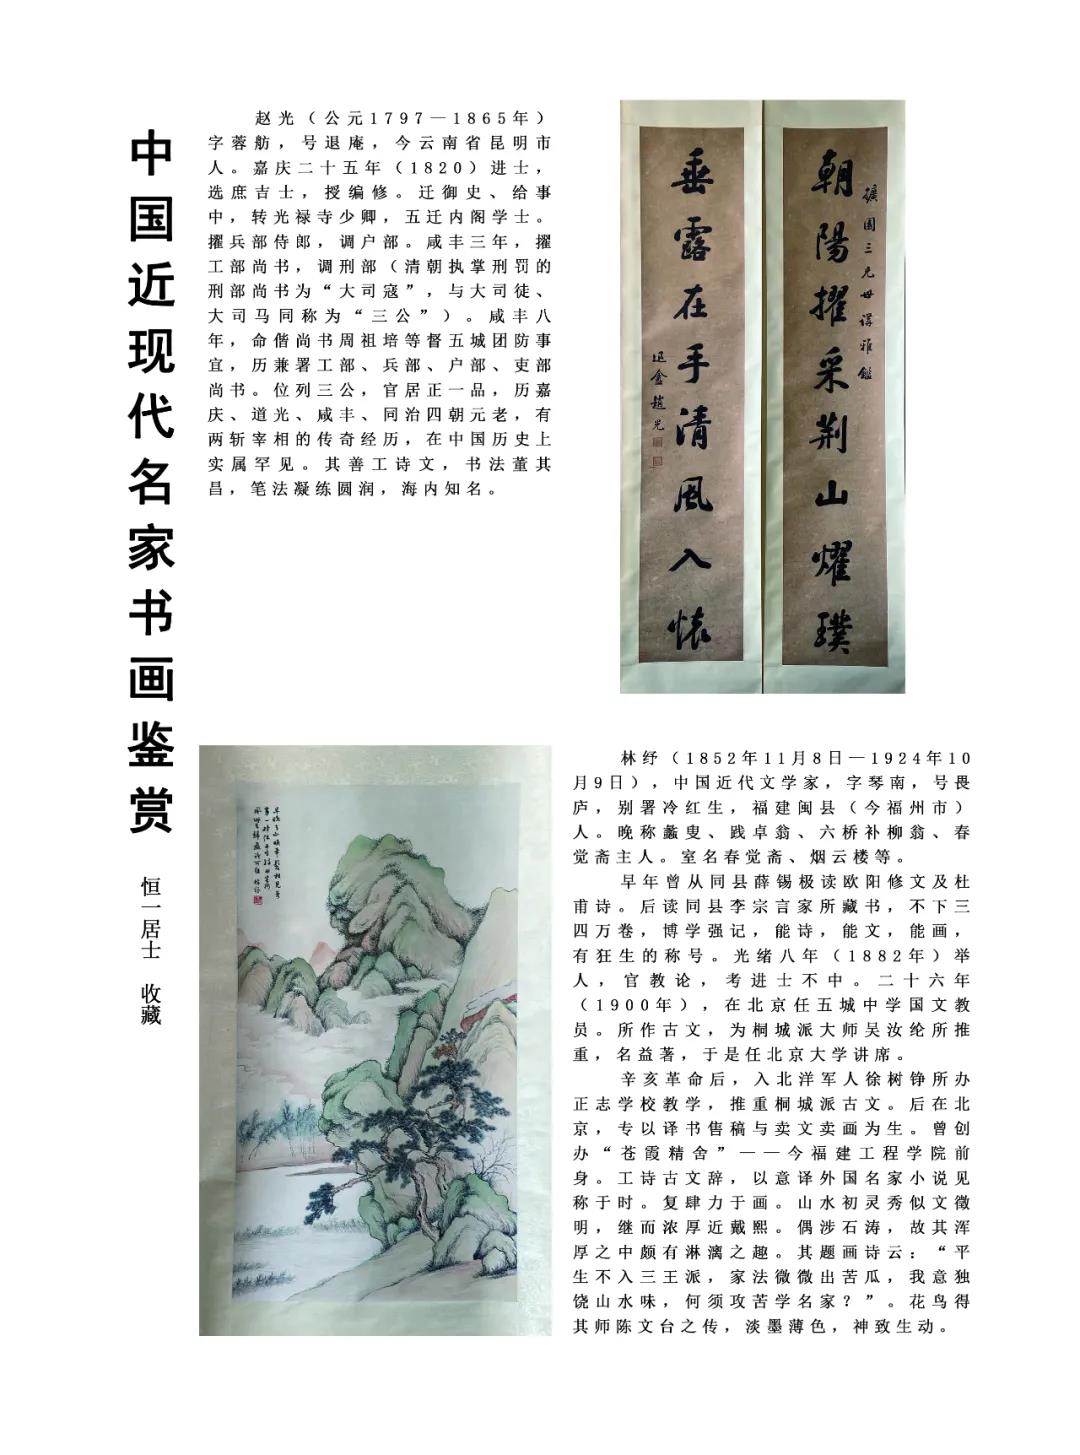 中国近现代名家书画鉴赏
恒一居士 收藏
赵光（公元1797—1865年）
字蓉舫，号退庵，今云南省昆明市
人。嘉庆二十五年（1820）进士，
选庶吉士，授编修。迁御史、给事
中，转光禄寺少卿，五迁内阁学士。
擢兵部侍郎，调户部。咸丰三年，擢
工部尚书，调刑部（清朝执掌刑罚的
刑部尚书为“大司寇”，与大司徒、
大司马同称为“三公”）。咸丰八
年，命偕尚书周祖培等督五城团防事
宜，历兼署工部、兵部、户部、吏部
尚书。位列三公，官居正一品，历嘉
庆、道光、咸丰、同治四朝元老，有
两斩宰相的传奇经历，在中国历史上
实属罕见。其善工诗文，书法董其
昌，笔法凝练圆润，海内知名。
朝陽擢采荆山耀璞
垂露在手清風入懷
趙光
林纾（1852年11月8日—1924年10
月9日），中国近代文学家，字琴南，号畏
庐，别署冷红生，福建闽县（今福州市）
人。晚称蠡叟、践卓翁、六桥补柳翁、春
觉斋主人。室名春觉斋、烟云楼等。
早年曾从同县薛锡极读欧阳修文及杜
甫诗。后读同县李宗言家所藏书，不下三
四万卷，博学强记，能诗，能文，能画，
有狂生的称号。光绪八年（1882年）举
人，官教论，考进士不中。二十六年
（1900年），在北京任五城中学国文教
员。所作古文，为桐城派大师吴汝纶所推
重，名益著，于是任北京大学讲席。
辛亥革命后，入北洋军人徐树铮所办
正志学校教学，推重桐城派古文。后在北
京，专以译书售稿与卖文卖画为生。曾创
办“苍霞精舍”——今福建工程学院前
身。工诗古文辞，以意译外国名家小说见
称于时。复肆力于画。山水初灵秀似文徵
明，继而浓厚近戴熙。偶涉石涛，故其浑
厚之中颇有淋漓之趣。其题画诗云：“平
生不入三王派，家法微微出苦瓜，我意独
饶山水味，何须攻苦学名家？”。花鸟得
其师陈文台之传，淡墨薄色，神致生动。